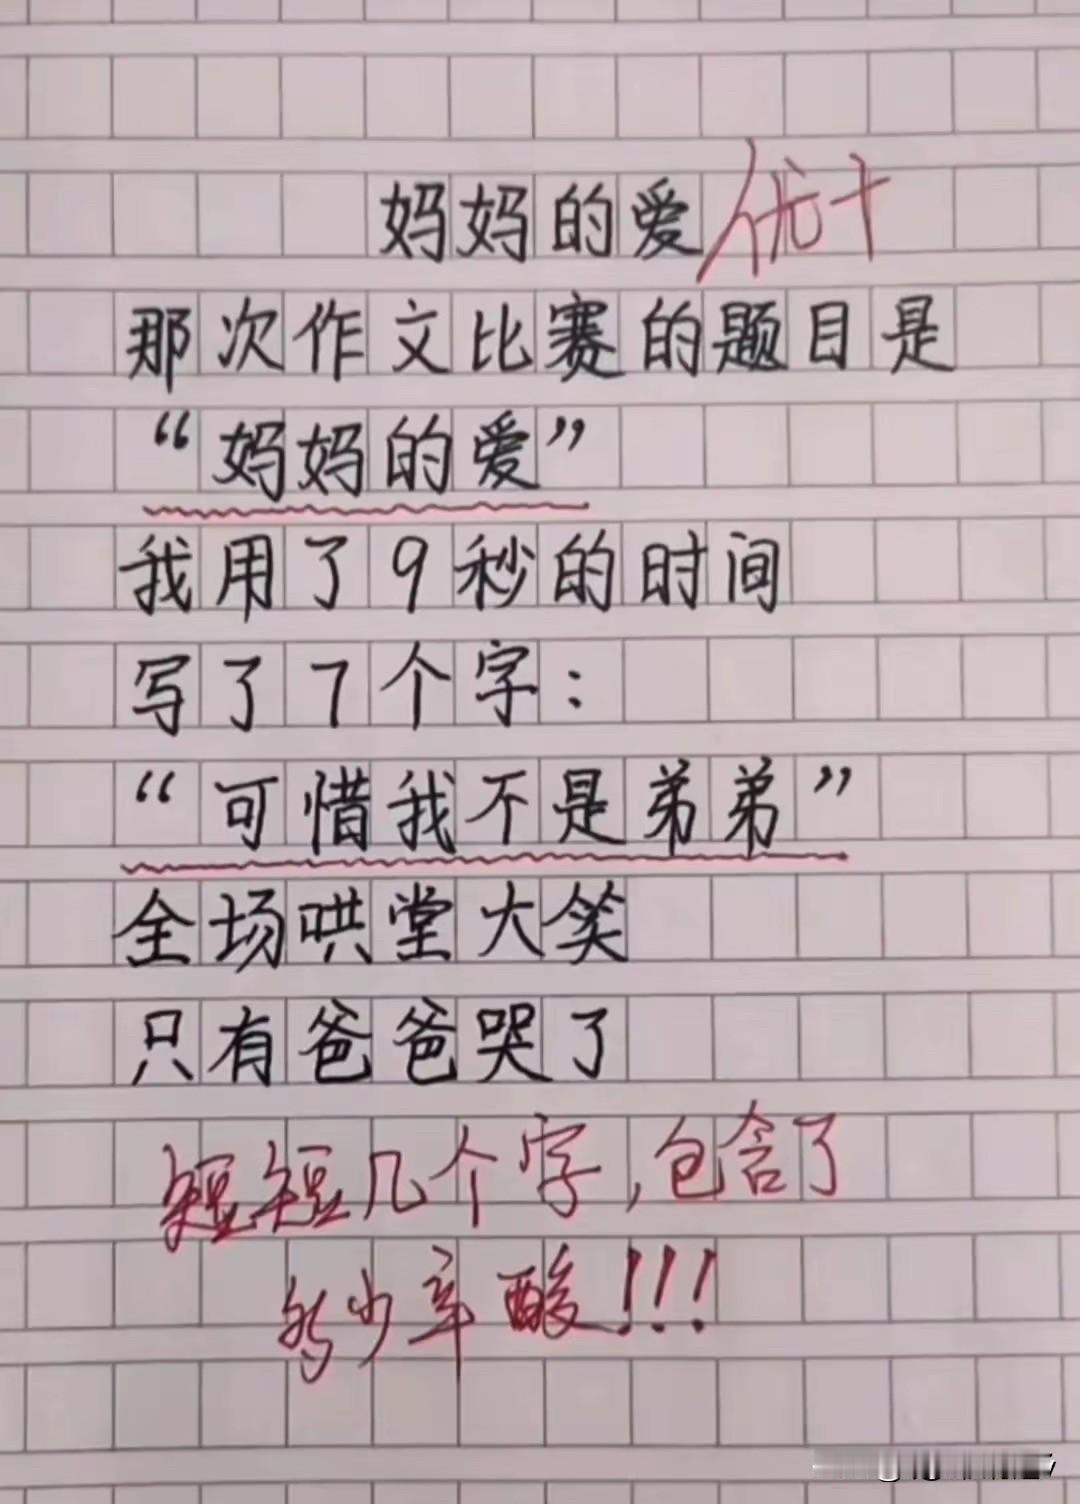 妈妈的爱 优+
那次作文比赛的题目是
“妈妈的爱”
我用了9秒的时间
写了7个字：
“可惜我不是弟弟”
全场哄堂大笑
只有爸爸哭了
短短几个字，包含了
多少辛酸！！！